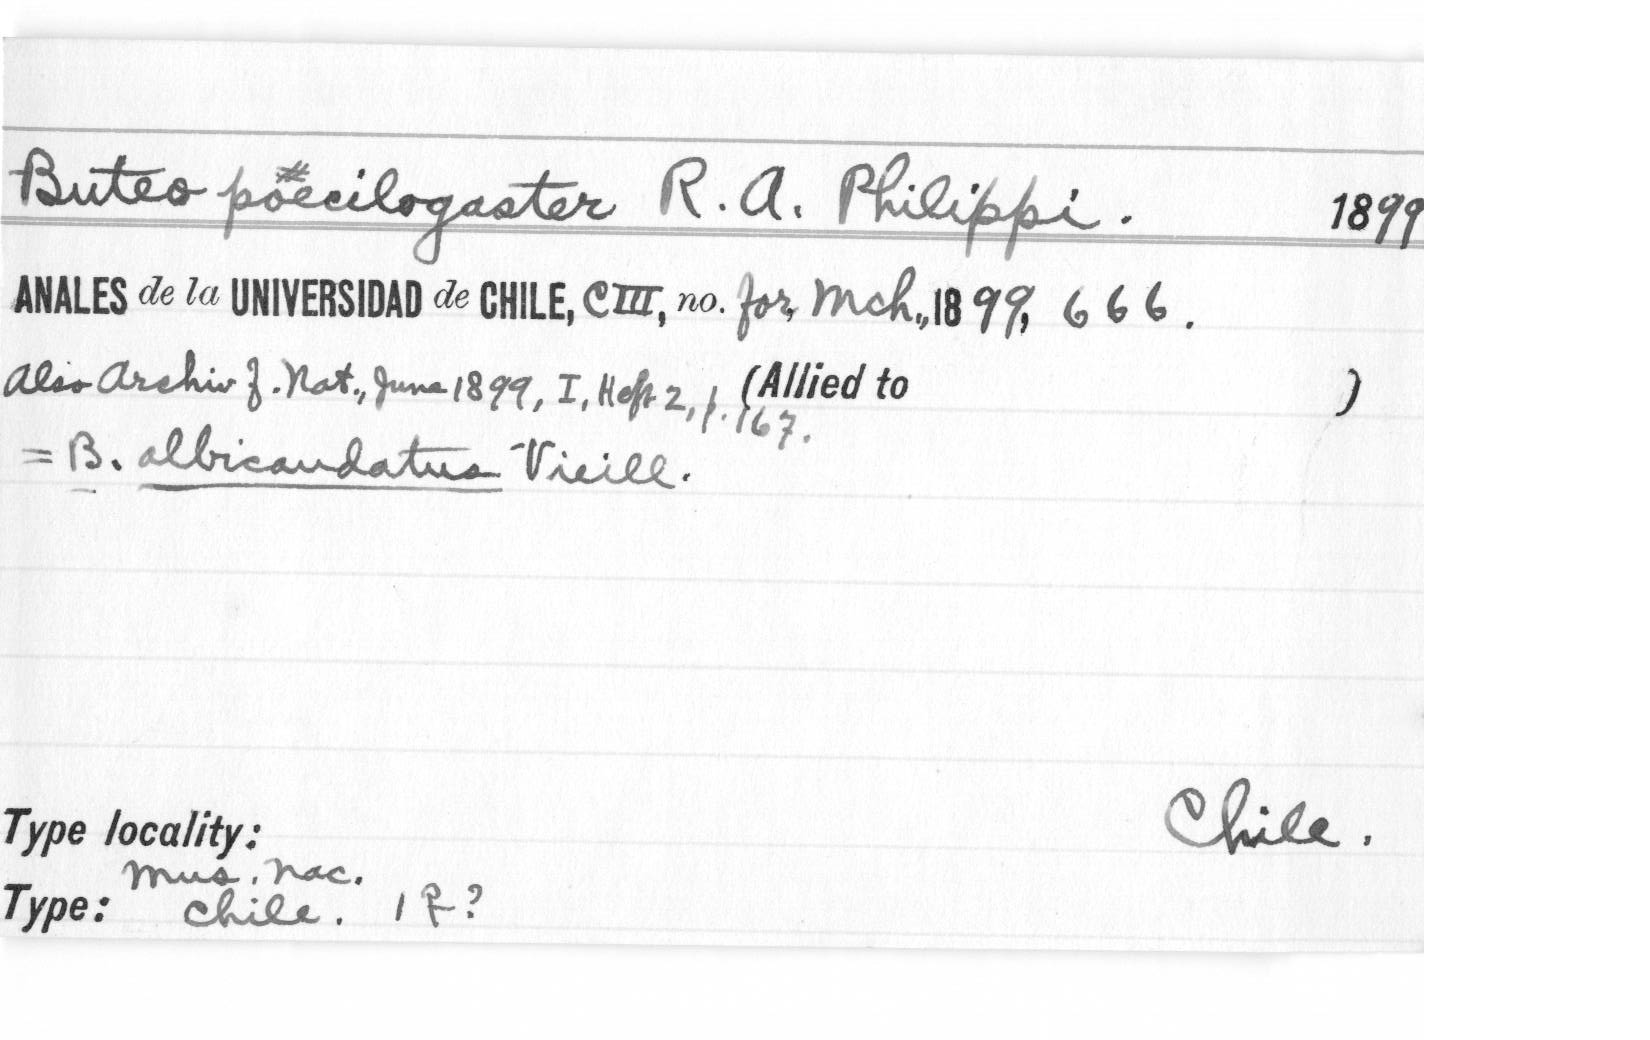 Buteo poecilogaster R. A. Philippi. 1899
ANALES de la UNIVERSIDAD de CHILE, CIII, no. for, Mch., 1899, 666.
Also Archiv f. Nat., June 1899, I, Heft 2, p. 167. (Allied to )
= B. albicaudatus Vieill.
Chile.
Type locality:
Mus. Nac.
Type: Chile. 1 ♀?